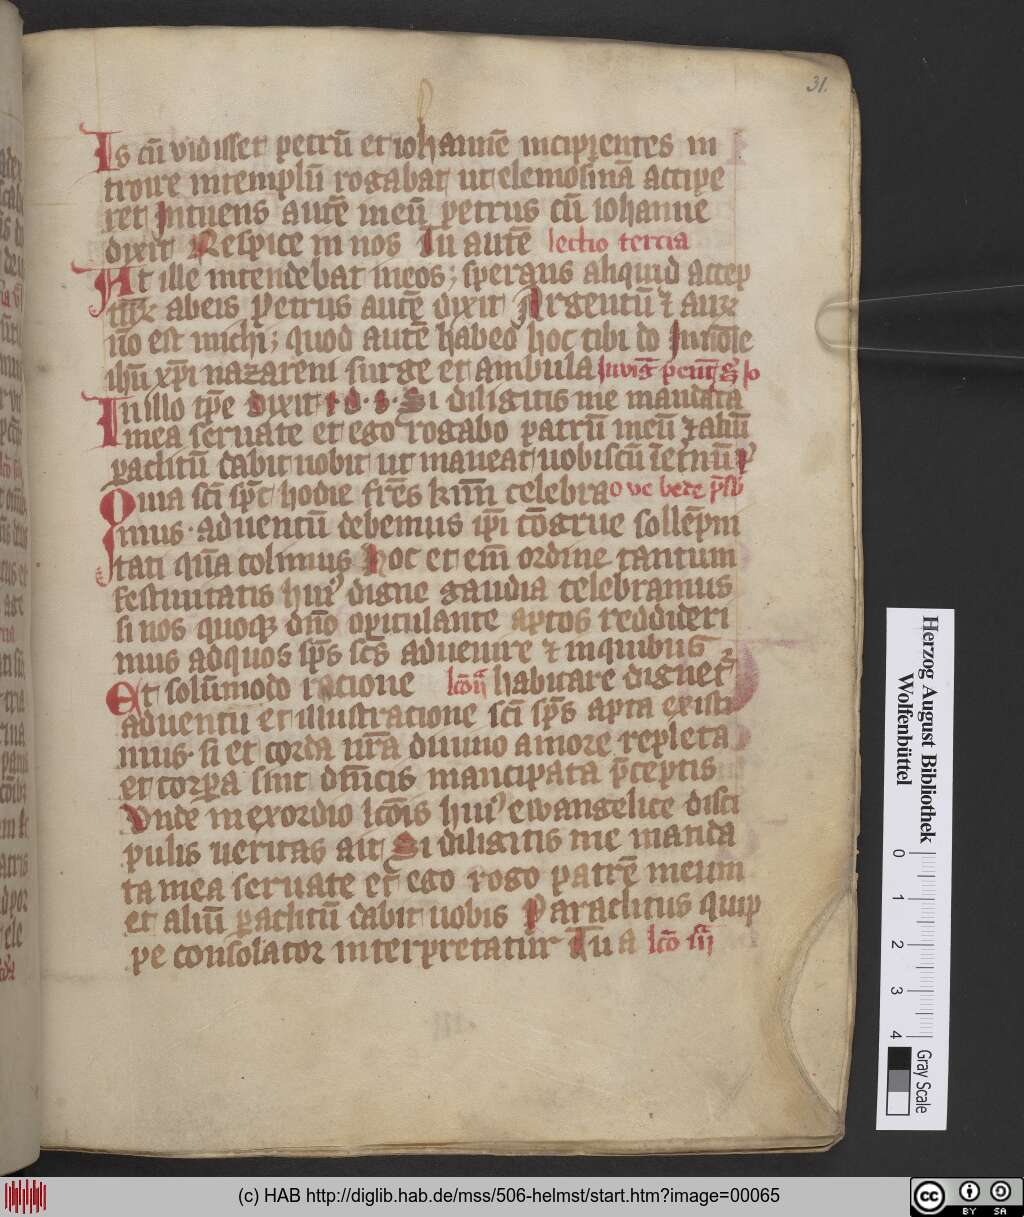 31.
Is cū vidisset petrū et iohannē incipientes in
troire in templū rogabat ut elemosinā accipe
ret Intuens autē in eū petrus cū iohanne
dixit Respice in nos Tu autē lectio tercia
At ille intendebat in eos; sperans aliquid accep
turꝝ ab eis Petrus autē dixit Argentū ⁊ auꝝ
nō est michi; quod autē habeo hoc tibi do In nōie
ihū xp̄i nazareni surge et ambula In viḡ pent̄
In illo tp̄e dixit i·d·s· Si diligitis me mandata
mea seruate et ego rogabo patrū meū ⁊ aliū
paclitū dabit uobit ut maneat uobiscū ī etnū
Quia sc̄i sp̄c hodie fr̄es km̄ī celebra o ve bede p̄sb
mus· aduentū debemus ip̄i cōgrue sollēpni
tati qūa colimus Hoc et em̄ ordine tantum
festiuitatis hui⁹ digne gaudia celebramus
si nos quoqꝫ dn̄o opitulante aptos reddideri
mus ad quos sp̄s sc̄s aduenire ⁊ in quibus
habitare dignet᷑
Et solūmodo racione lc̄o ij
aduentu et illustracione sc̄i sp̄s apta existi
mus· si et corda nr̄a diuino amore repleta
et corpa sint dn̄icis mancipata p̄ceptis
Unde in exordio lc̄ōis hui⁹ ewangelice disci
pulis ueritas ait Si diligitis me manda
ta mea seruate et ego rogo patrē meum
et aliū paclitū dabit uobis Paraclitus quip
pe consolator interpretatur Tu a lc̄o iij
Herzog August Bibliothek
Wolfenbüttel
0 1 2 3 4
Gray Scale
(c) HAB http://diglib.hab.de/mss/506-helmst/start.htm?image=00065
cc BY SA